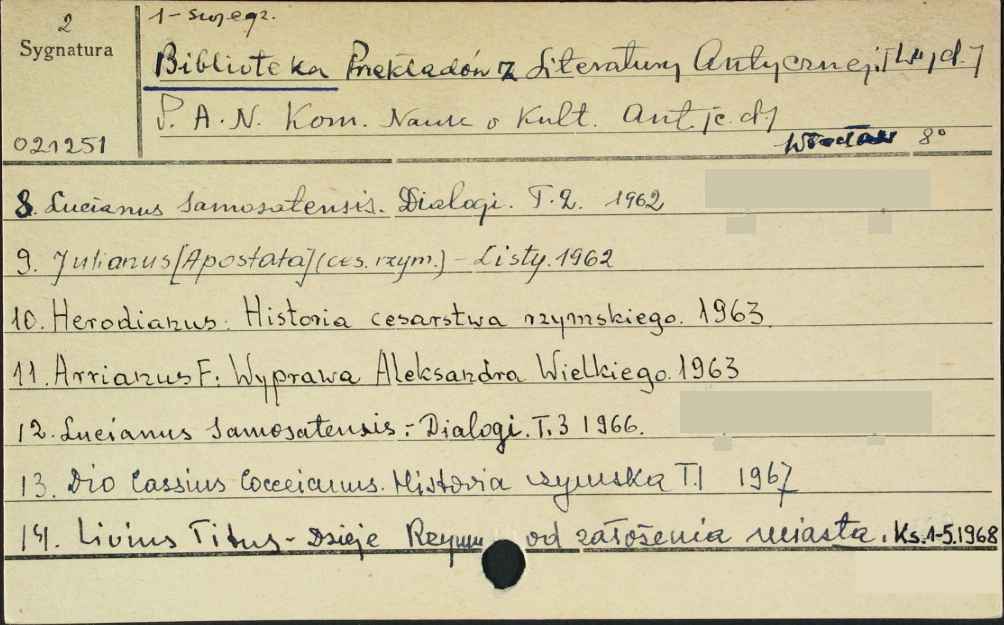 2
Sygnatura
021251
1-szy egz.
Biblioteka Przekładów z Literatury Antycznej.
P.A.N. Kom. Nauk o Kult. Ant.
Wrocław 8°
8. Lucianus Samosatensis. Dialogi. T.2. 1962
9. Julianus [Apostata] (ces. rzym.) - Listy. 1962
10. Herodianus: Historia cesarstwa rzymskiego. 1963.
11. Arrianus F. Wyprawa Aleksandra Wielkiego. 1963
12. Lucianus Samosatensis: - Dialogi. T.3 1966.
13. Dio Cassius Cocceianus. Historia rzymska T.I 1967
14. Livius Titus - Dzieje Rzymu od założenia miasta. Ks. 1-5. 1968